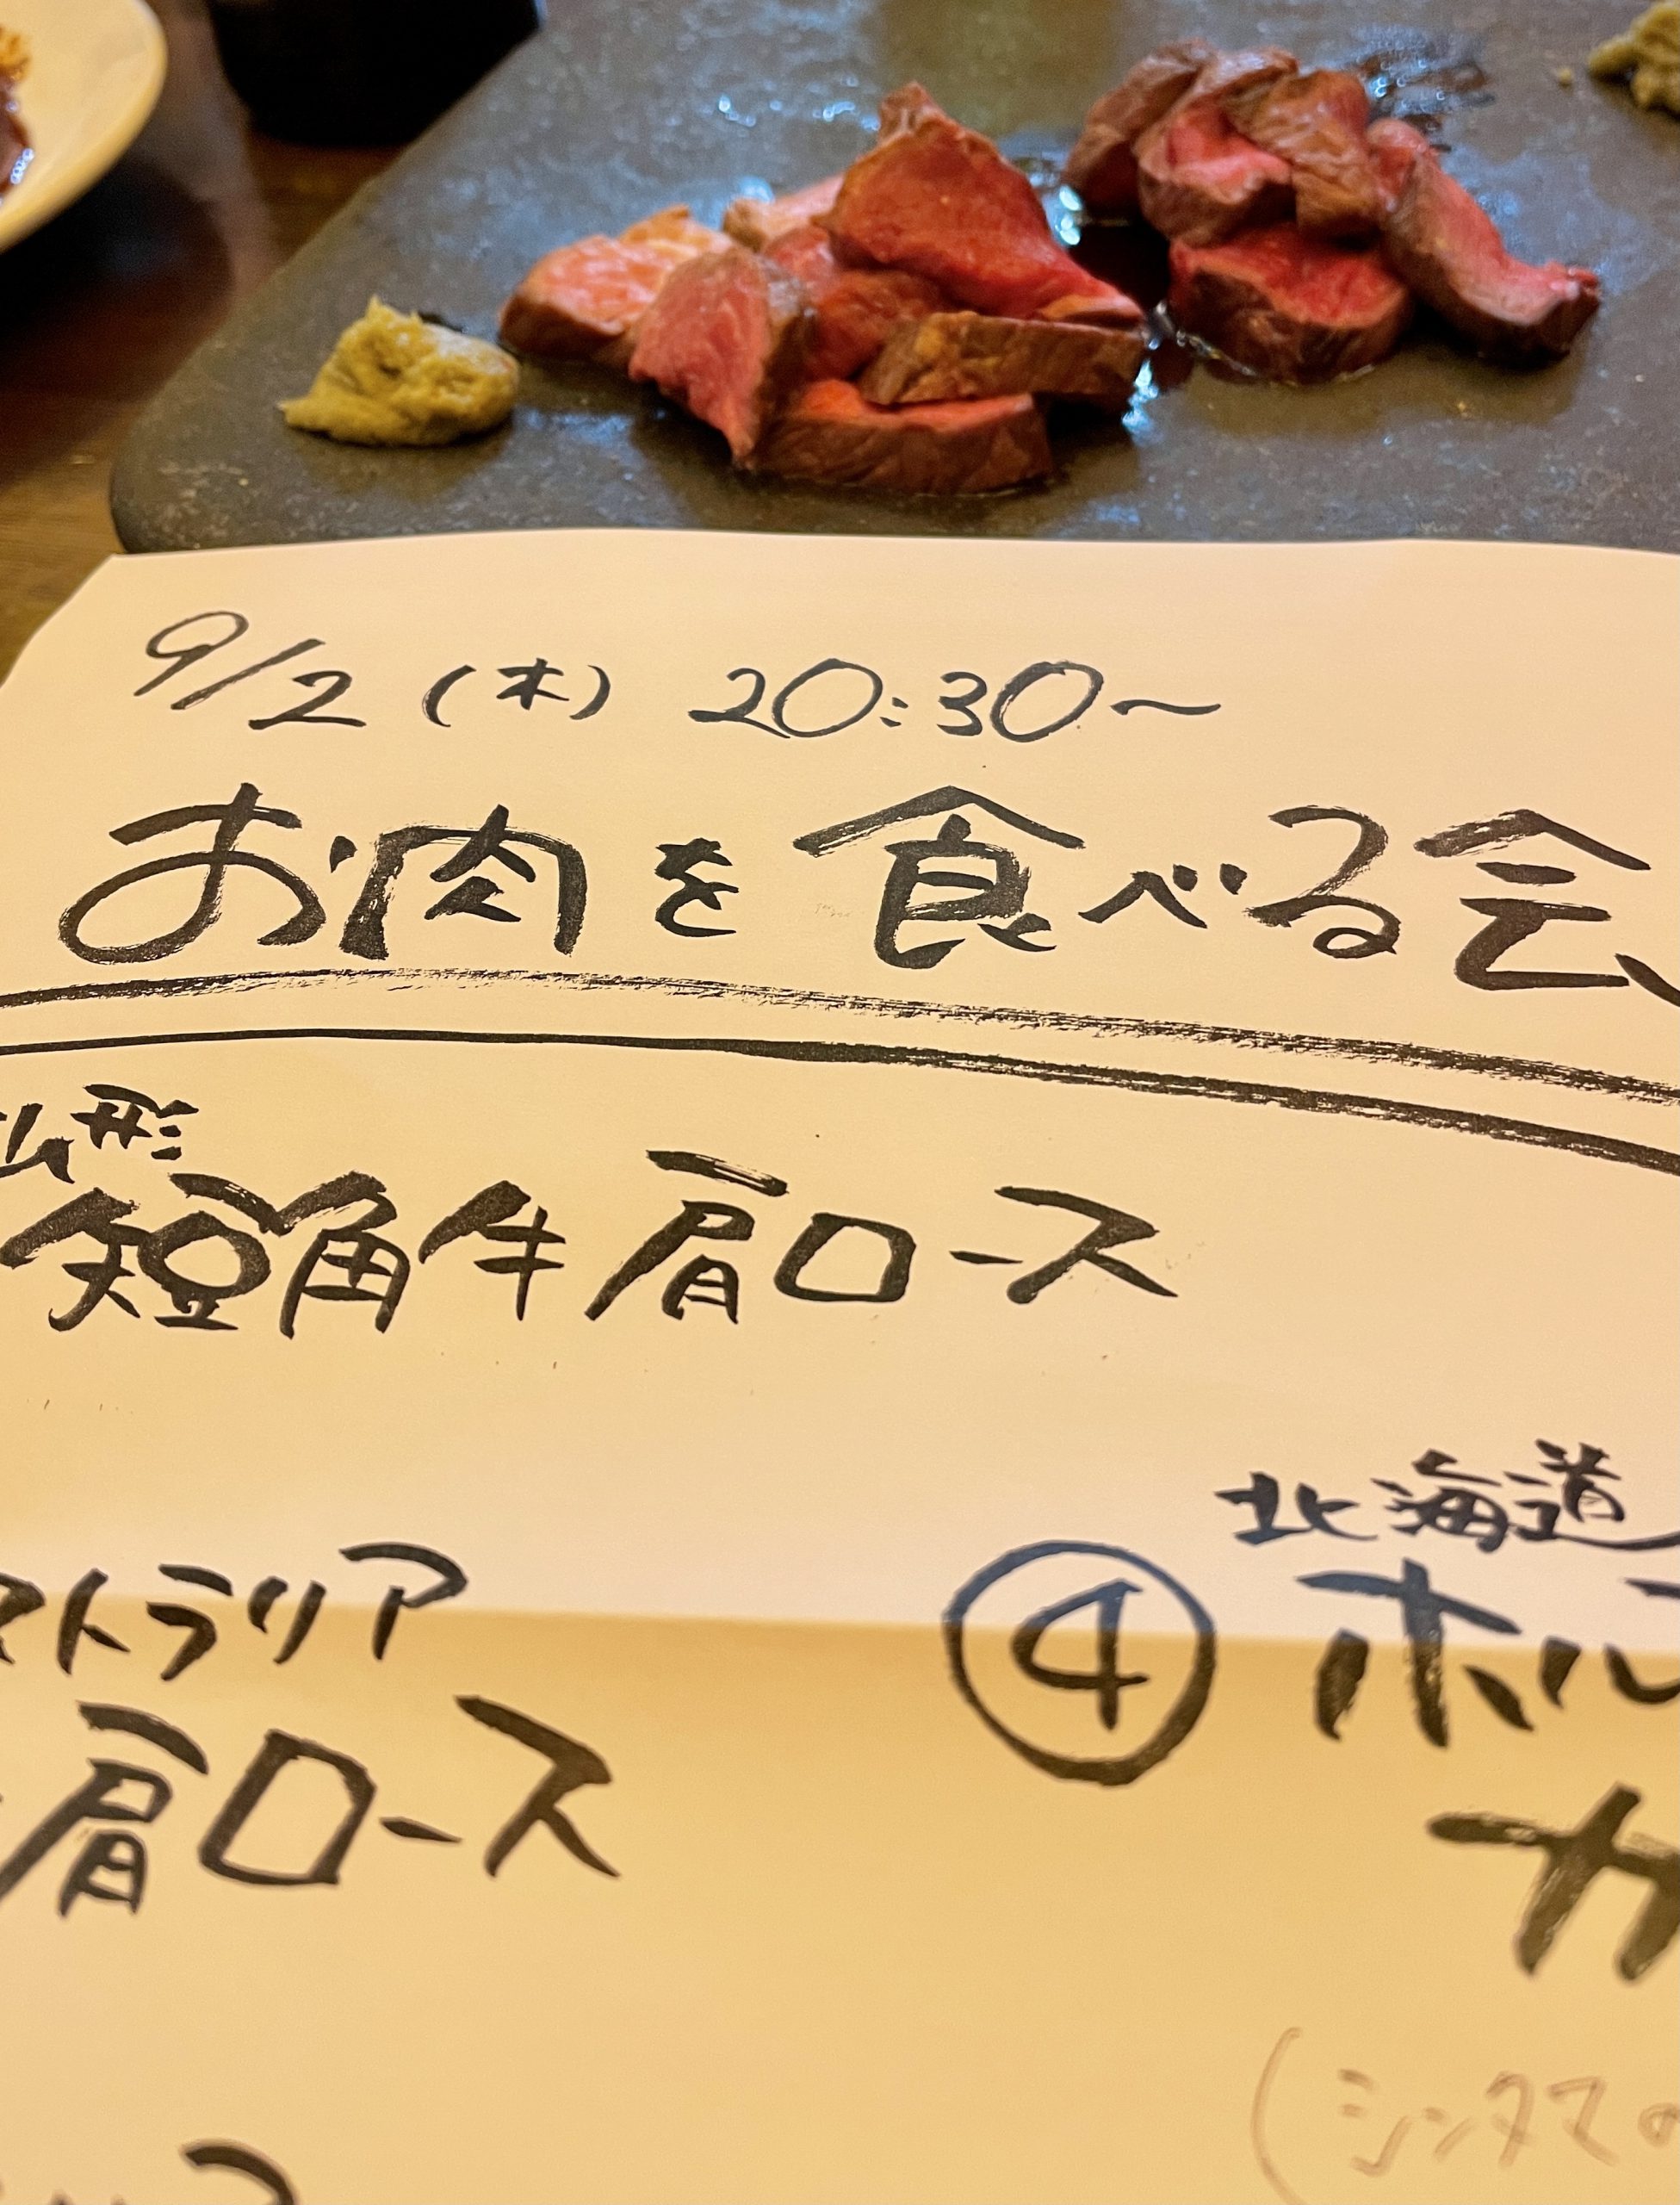 9/2 (木) 20:30〜
お肉を食べる会
山形
短角牛肩ロース
ストラリア
肩ロース
北海道
④ ホル
カ
(シンタマの